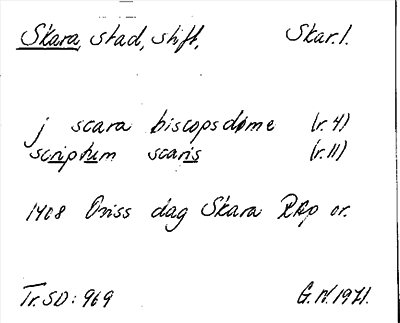 Skara, stad, stift,    Skar.1.
j scara biscopsdøme (r.4)
scriptum scaris (r.11)
1408 Oviss dag Skara RAp or.
Tr. SD: 969    G.N. 1971.